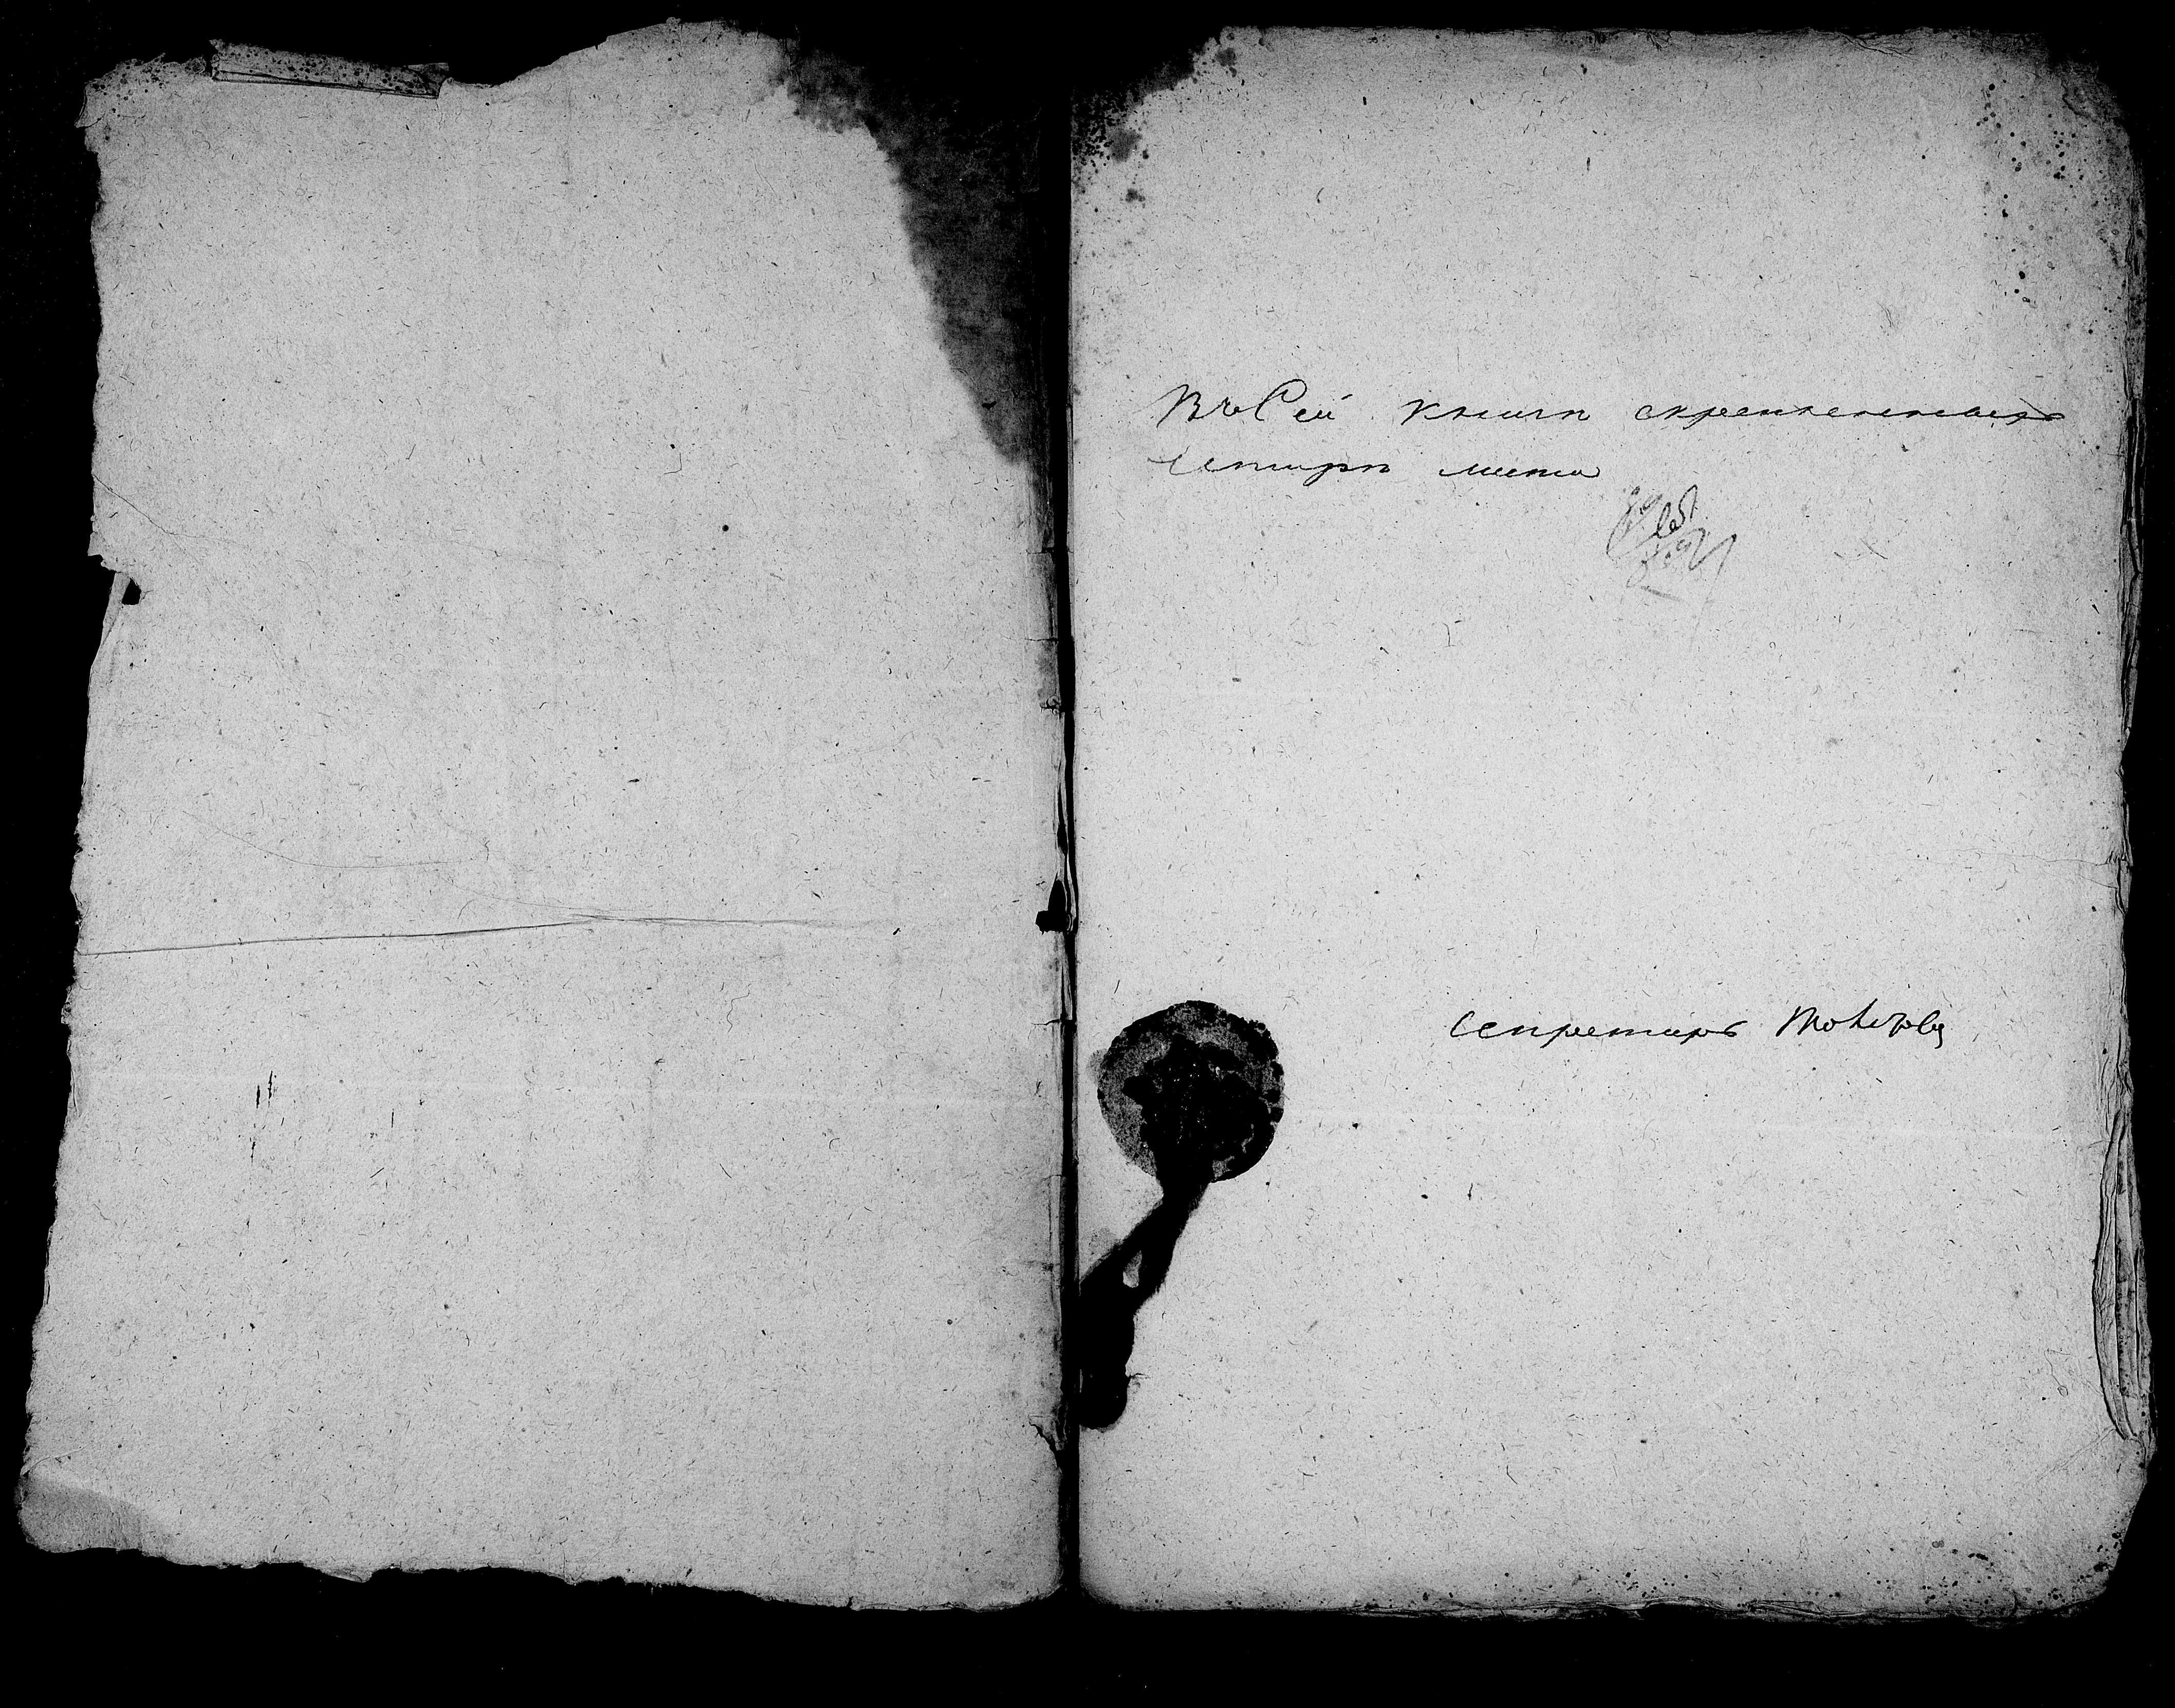 Въ Сей книгѣ скрепленныхъ
четыре листа
Секретарь